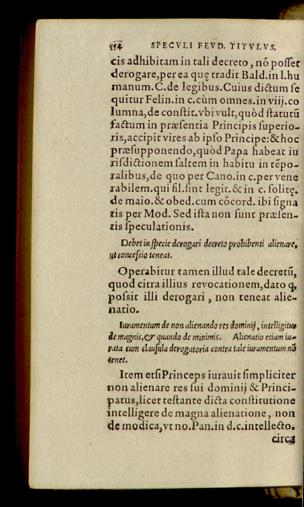 154 SPECVLI FEVD. TITVLVS.
cis adhibitam in tali decreto, nõ posset
derogare, per ea quę tradit Bald. in l. hu
manum. C. de legibus. Cuius dictum se
quitur Felin. in c. cùm omnes. in viij. co
lumna, de constit. vbi vult, quòd statutũ
factum in præsentia Principis superio-
ris, accipit vires ab ipso Principe: & hoc
præsupponendo, quòd Papa habeat iu
risdictionem saltem in habitu in tẽpo-
ralibus, de quo per Cano. in c. per vene
rabilem. qui fil. sint legit. & in c. solitę.
de maio. & obed. cum cõcord. ibi signa
tis per Mod. Sed ista non sunt præsen-
tis speculationis.
Debet in specie derogari decreto prohibenti alienare,
vt concessio teneat.
Operabitur tamen illud tale decretũ,
quod citra illius reuocationem, dato q,
possit illi derogari, non teneat alie-
natio.
Iuramentum de non alienando res dominij, intelligitur
de magnis, & quando de minimis. Alienatio etiam iu-
rata cum clausula derogatoria contra tale iuramentum nõ
tenet.
Item etsi Princeps iurauit simpliciter
non alienare res sui dominij & Princi-
patus, licet testante dicta constitutione
intelligere de magna alienatione, non
de modica, vt no. Pan. in d. c. intellecto.
circa